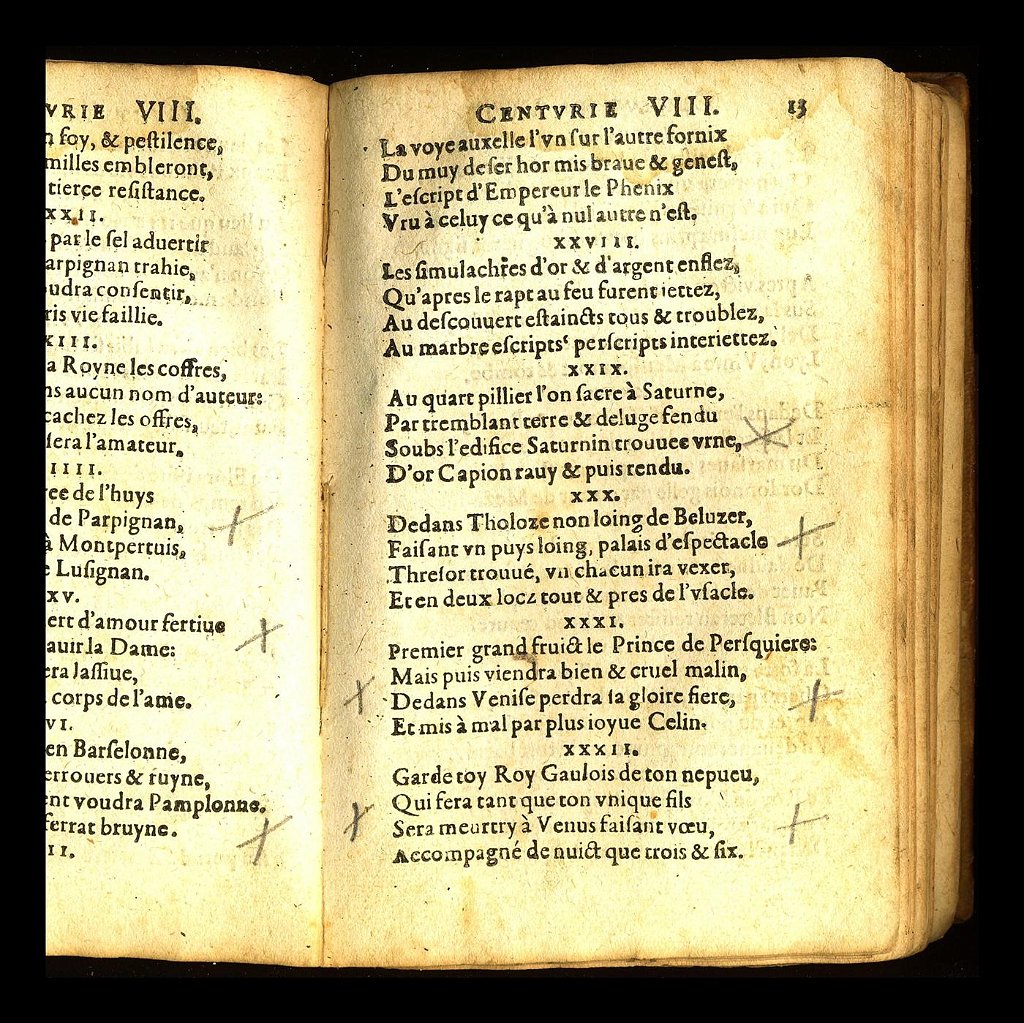 VRIE VIII.
foy, & peſtilence,
milles embleront,
tierce reſiſtance.
XXII.
par le ſel aduertir
arpignan trahie,
udra conſentir,
ris vie faillie.
XIII.
a Royne les coffres,
ns aucun nom d'auteur:
cachez les offres,
ſera l'amateur.
IIII.
ree de l'huys
de Parpignan,
à Montpertuis,
e Luſignan.
XV.
ert d'amour fertiue
auir la Dame:
era laſſiue,
corps de l'ame.
VI.
en Barſelonne,
errouers & ruyne,
ent voudra Pamplonne.
ferrat bruyne.
II.
CENTVRIE VIII. 13
La voye auxelle l'vn ſur l'autre fornix
Du muy deſer hor mis braue & geneſt,
L'eſcript d'Empereur le Phenix
Vru à celuy ce qu'à nul autre n'eſt.
XXVIII.
Les ſimulachres d'or & d'argent enflez,
Qu'apres le rapt au feu furent iettez,
Au deſcouuert eſtaincts tous & troublez,
Au marbre eſcripts perſcripts interiettez.
XXIX.
Au quart pillier l'on ſacre à Saturne,
Par tremblant terre & deluge fendu
Soubs l'edifice Saturnin trouuee vrne,
D'or Capion rauy & puis rendu.
XXX.
Dedans Tholoze non loing de Beluzer,
Faiſant vn puys loing, palais d'eſpectacle
Threſor trouué, vn chacun ira vexer,
Et en deux locz tout & pres de l'vſacle.
XXXI.
Premier grand fruict le Prince de Perſquiere:
Mais puis viendra bien & cruel malin,
Dedans Veniſe perdra ſa gloire fiere,
Et mis à mal par plus ioyue Celin.
XXXII.
Garde toy Roy Gaulois de ton nepueu,
Qui fera tant que ton vnique fils
Sera meurtry à Venus faiſant vœu,
Accompagné de nuict que trois & ſix.